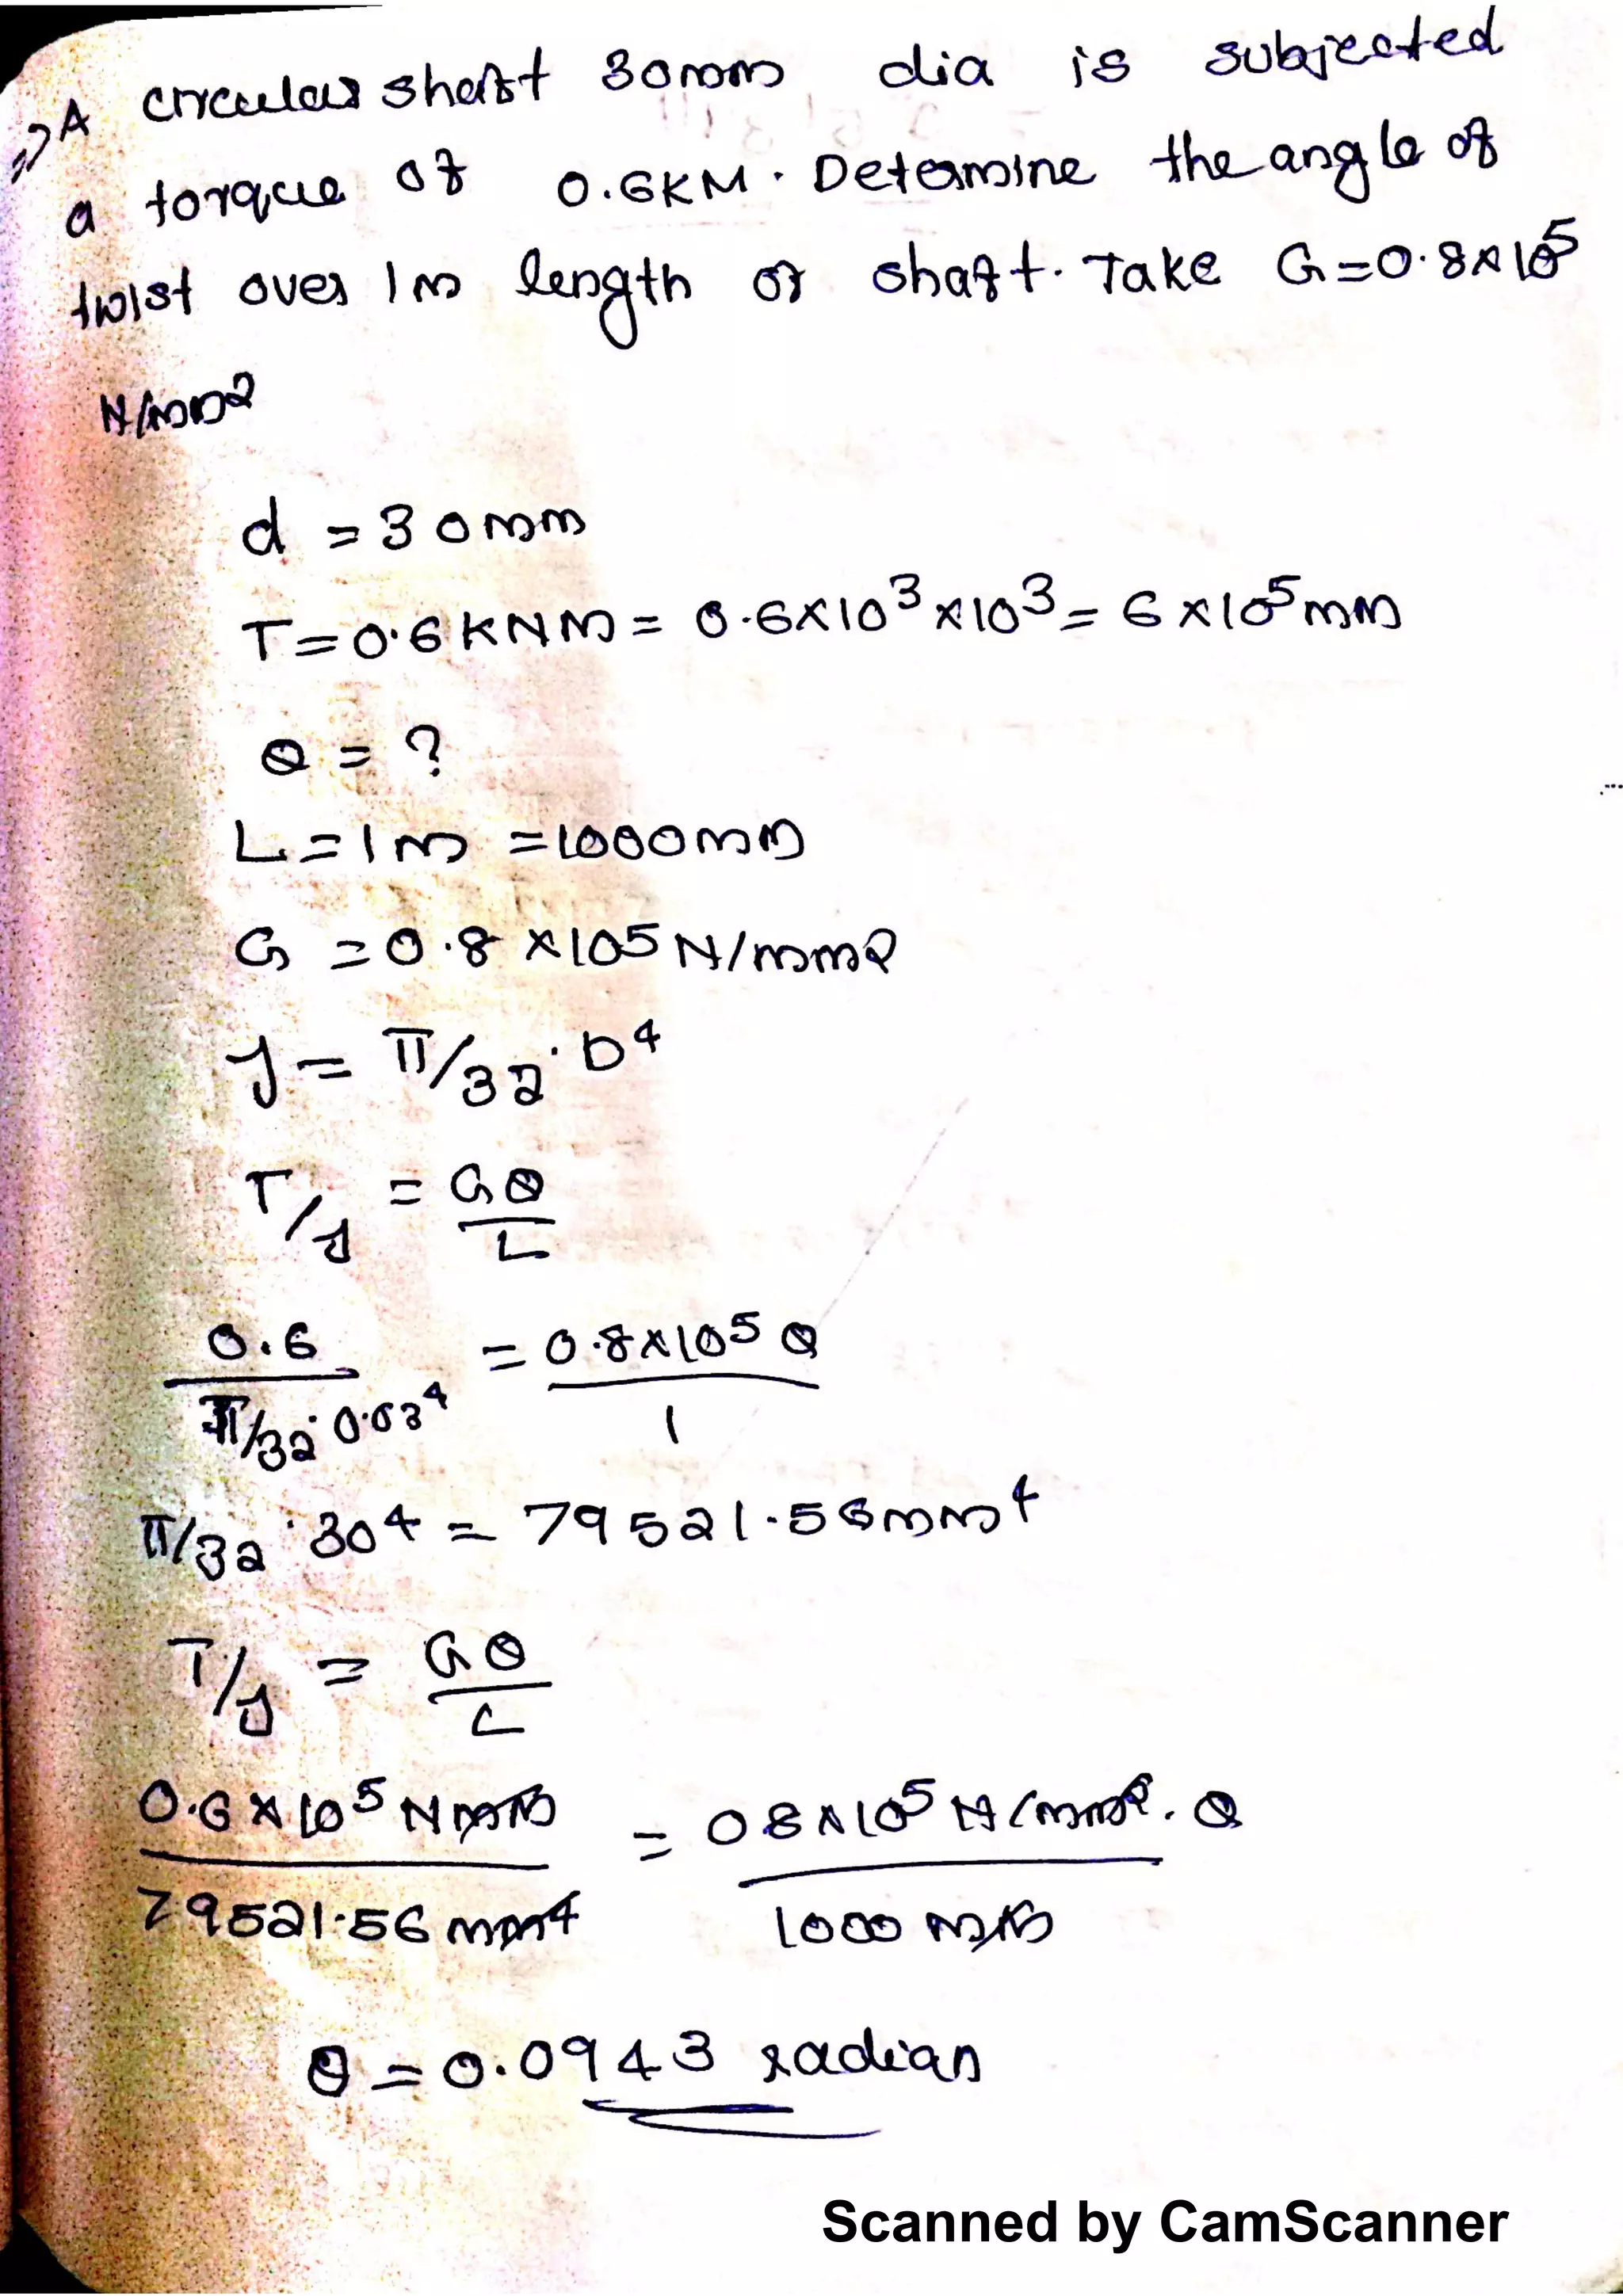 A circular shaft 30mm dia is subjected
a torque of 0.6KM. Determine the angle of
twist over 1m length of shaft. Take G=0.8×10^5
N/mm2
d = 30mm
T=0.6KNM= 0.6×10^3×10^3= 6×10^5mm
θ = ?
L=1m =1000mm
G =0.8×10^5N/mm2
J= π/32.D^4
T/J = Gθ
L
0.6 = 0.8×10^5 θ
π/32.0.03^4 1
π/32.30^4 = 79521.56mm^4
T/J = Gθ
L
0.6×10^5 Nmm = 08×10^5 N/mm2.θ
79521.56 mm4 1000 mm
θ=0.0943 radian
Scanned by CamScanner